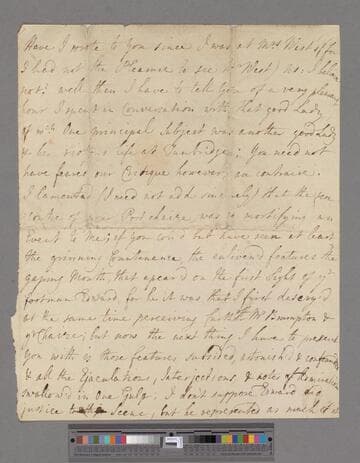 Have I wrote to you since I was at Mrs West's (for
I had not the pleasure to see Mr West) no: I believe
not: well then I have to tell you of a very pleasant
hour I spent in Conversation with that good Lady
of wch One principal Subject was another good Lady
& her life at Tunbridge: you need not
have fears our Croique however, au contraire.
I lamented (I need not add sincerely) that the
of your Pt chaize was so mortifying an
Event to me; if you cou'd but have seen at least
the grinning Countenance the enliven'd features the
gaping Mouth, that appear'd on the first Sight of yr
footman Edward, for he it was that I first descry'd
at the same time perceiving Mr Brimpton &
yr Chaize; but now the next thing I have to present
you with is those features subsided, astonish'd & confounded
& all the Ejaculations, Interjections, & notes of Admiration
swallow'd in One Gulp: I don't suppose Edward did
justice to the Scene, but he represented as much of it